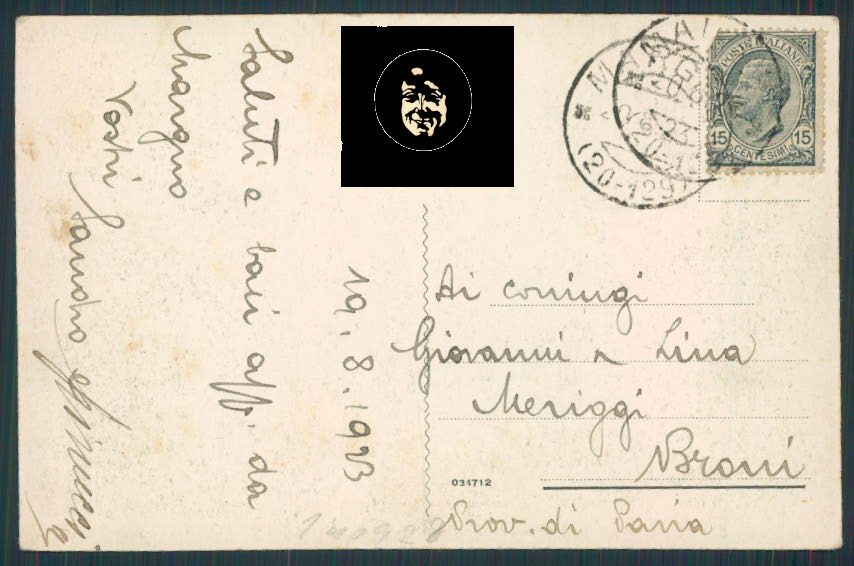 Saluti e baci aff. da
Margno
Vostri Sandro
19.8.1923
Ai coniugi
Giovanni e Lina
Meriggi
Broni
Prov. di Pavia
031712
POSTE ITALIANE
15 15
CENTESIMI
(20-129)